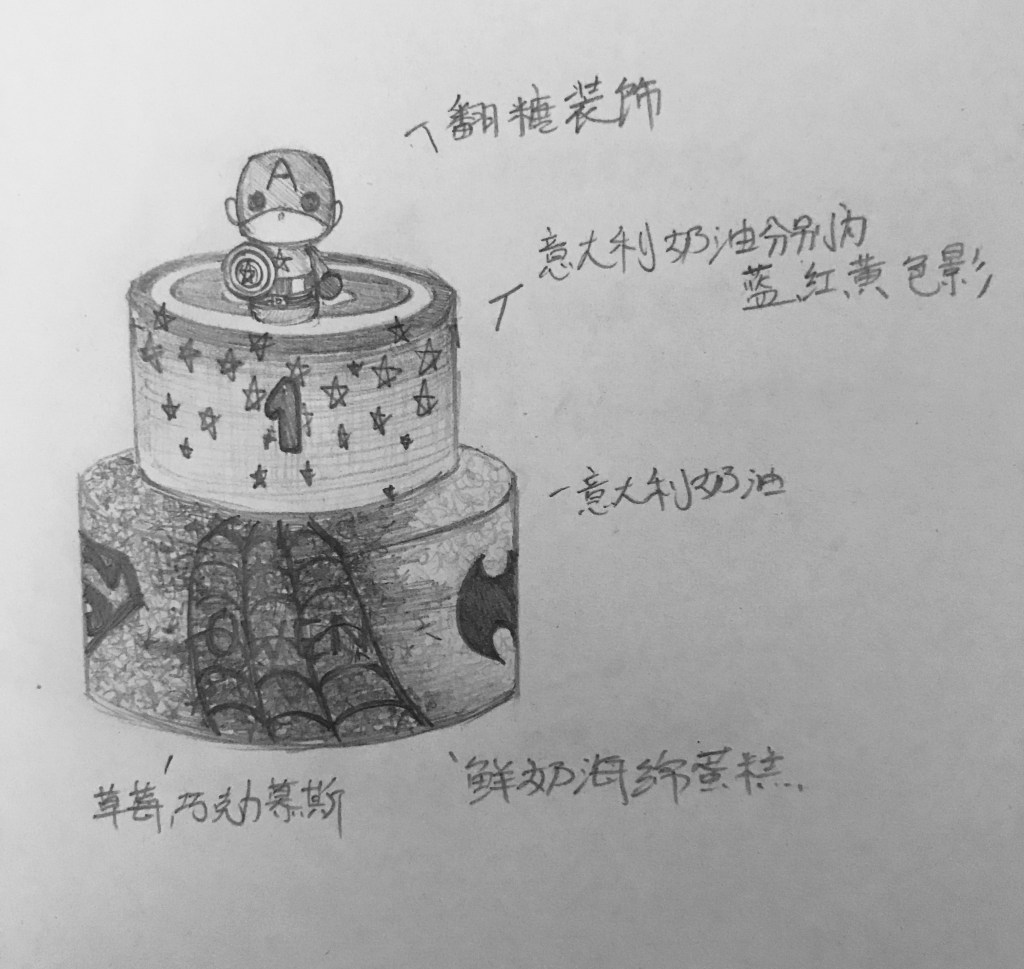 翻糖装饰
A
意大利奶油分别为
蓝、红、黄色影
1
意大利奶油
OWEN
草莓,巧克力慕斯
鲜奶海绵蛋糕.